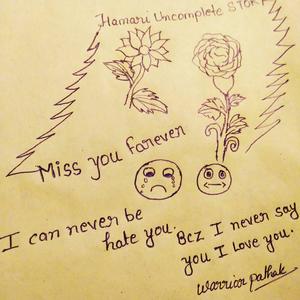 Hamari Uncomplete STORY
Miss you farever
I can never be
hate you.
Bcz I never say
you I love you.
Warrior pathak